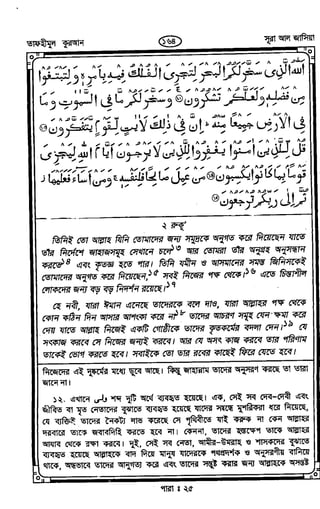 তাফহীমুল কুরআন
১৬৪
সূরা আল জাসিয়া
اَللّٰهُ الَّذِىْ سَخَّرَ لَكُمُ الْبَحْرَ لِتَجْرِىَ الْفُلْكُ فِيْهِ بِاَمْرِهٖ وَلِتَبْتَغُوْا
مِنْ فَضْلِهٖ وَلَعَلَّكُمْ تَشْكُرُوْنَ ۞ وَسَخَّرَ لَكُمْ مَّا فِى السَّمٰوٰتِ وَمَا
فِى الْاَرْضِ جَمِيْعًا مِّنْهُ ؕ اِنَّ فِىْ ذٰلِكَ لَاٰيٰتٍ لِّقَوْمٍ يَّتَفَكَّرُوْنَ ۞
قُلْ لِّلَّذِيْنَ اٰمَنُوْا يَغْفِرُوْا لِلَّذِيْنَ لَا يَرْجُوْنَ اَيَّامَ اللّٰهِ لِيَجْزِىَ
قَوْمًۢا بِمَا كَانُوْا يَكْسِبُوْنَ ۞ مَنْ عَمِلَ صَالِحًا فَلِنَفْسِهٖ ۚ وَمَنْ اَسَآءَ فَعَلَيْهَا ؗ
ثُمَّ اِلٰى رَبِّكُمْ تُرْجَعُوْنَ ۞
২ রুকূ'
তিনিই তো আল্লাহ যিনি তোমাদের জন্য সমুদ্রকে অনুগত করে দিয়েছেন যাতে
তাঁর নির্দেশে জাহাজসমূহ সেখানে চলে আর তোমরা তাঁর অনুগ্রহ অনুসন্ধান
করতে এবং কৃতজ্ঞ হতে পার। তিনি যমীন ও আসমানের সমস্ত জিনিসকেই
তোমাদের অনুগত করে দিয়েছেন, সবই নিজের পক্ষ থেকে। এতে চিন্তাশীল
লোকদের জন্য বড় বড় নিদর্শন রয়েছে।
হে নবী, যারা ঈমান এনেছে তাদেরকে বলে দাও, যারা আল্লাহর পক্ষ থেকে
কোন কঠিন দিন আসার আশংকা করে না তাদের আচরণ সমূহ যেন ক্ষমা করে
দেয় যাতে আল্লাহ নিজেই একটি গোষ্ঠীকে তাদের কৃতকর্মের বদলা দেন। যে
সৎকাজ করবে সে নিজের জন্যই করবে। আর যে অসৎ কাজ করবে তার পরিণাম
তাকেই ভোগ করতে হবে। সবাইকে তো তার রবের কাছেই ফিরে যেতে হবে।
নিজেদের এই দুষ্কর্মের মধ্যে ডুবে আছে। কিন্তু জাহান্নাম তাদের অনুসরণ করছে তা তারা
জানে না।
১২. এখানে ولى শব্দ দুটি অর্থে ব্যবহৃত হয়েছে। এক, সেই সব দেব-দেবী এবং
জীবিত বা মৃত নেতাদের বুঝাতে ব্যবহৃত হয়েছে যাদের সম্বন্ধে মুশরিকরা ধরে নিয়েছে,
যে ব্যক্তিই তাদের নৈকট্য লাভ করেছে সে পৃথিবীতে যাই করুক না কেন আল্লাহর
দরবারে তাকে জবাবদিহি করতে হবে না। কেননা, তাদের হস্তক্ষেপ তাকে আল্লাহর
আযাব থেকে রক্ষা করবে। দুই, সেই সব নেতা, আমীর-উমরাহ ও শাসকদের বুঝাতে
ব্যবহৃত হয়েছে আল্লাহকে বাদ দিয়ে মানুষ যাদেরকে পথপ্রদর্শক ও অনুসরণীয় বানিয়ে
থাকে, অন্ধভাবে তাদের আনুগত্য করে এবং তাদের সন্তুষ্ট করার জন্য আল্লাহকে অসন্তুষ্ট
পারা : ২৫